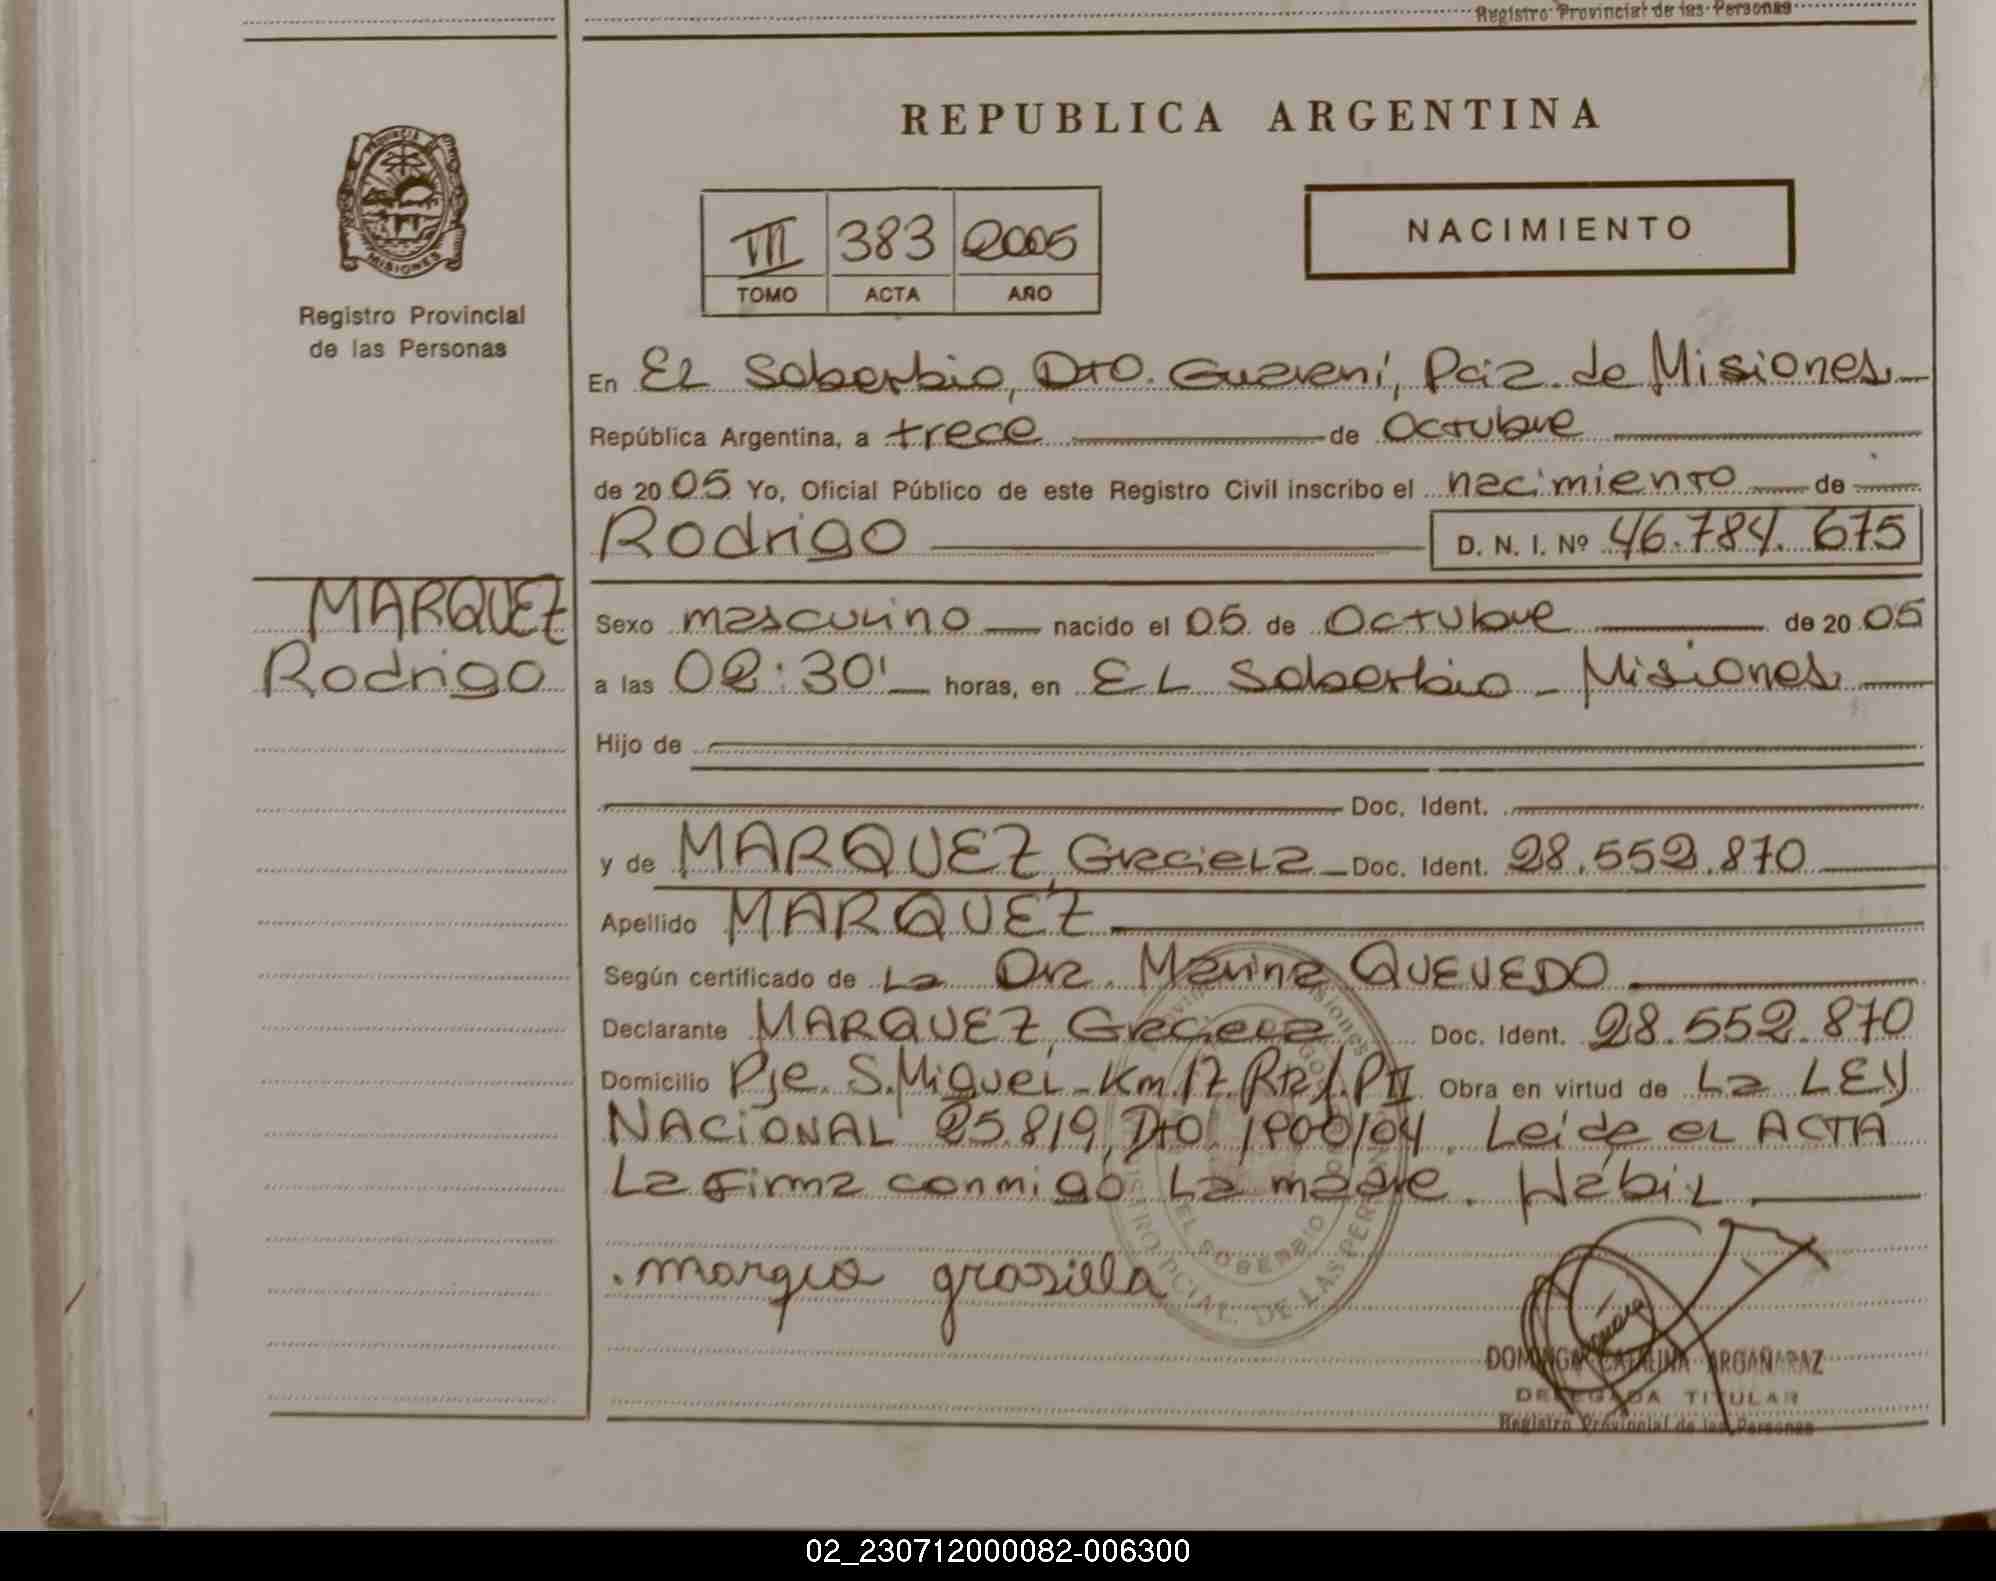 Registro Provincial de las Personas
REPUBLICA ARGENTINA
PROVINCIA
MISIONES
Registro Provincial
de las Personas
III 383 2005
TOMO ACTA AÑO
NACIMIENTO
En El Soberbio, Dto. Guaraní, Pcia. de Misiones
República Argentina, a trece de Octubre
de 2005 Yo, Oficial Público de este Registro Civil inscribo el nacimiento de
Rodrigo D. N. I. Nº 46.784.675
MARQUEZ
Rodrigo
Sexo masculino nacido el 05 de Octubre de 2005
a las 02:30' horas, en El Soberbio - Misiones
Hijo de
Doc. Ident.
y de MARQUEZ, Graciela Doc. Ident. 28.552.870
Apellido MARQUEZ
Según certificado de La Dra. Marina QUEVEDO
Declarante MARQUEZ, Graciela Doc. Ident. 28.552.870
Domicilio Pje. S. Miguel - Km. 17. Obra en virtud de La LEY
NACIONAL 25.819, Dto. 1900/04. Leída el ACTA
La firma conmigo La madre. Hábil
EL SOBERBIO
PCIAL. DE LAS PER
. marqua grasiela
DOMINGA CATALINA ARGAÑARAZ
DELEGADA TITULAR
Registro Provincial de las Personas
02_230712000082-006300